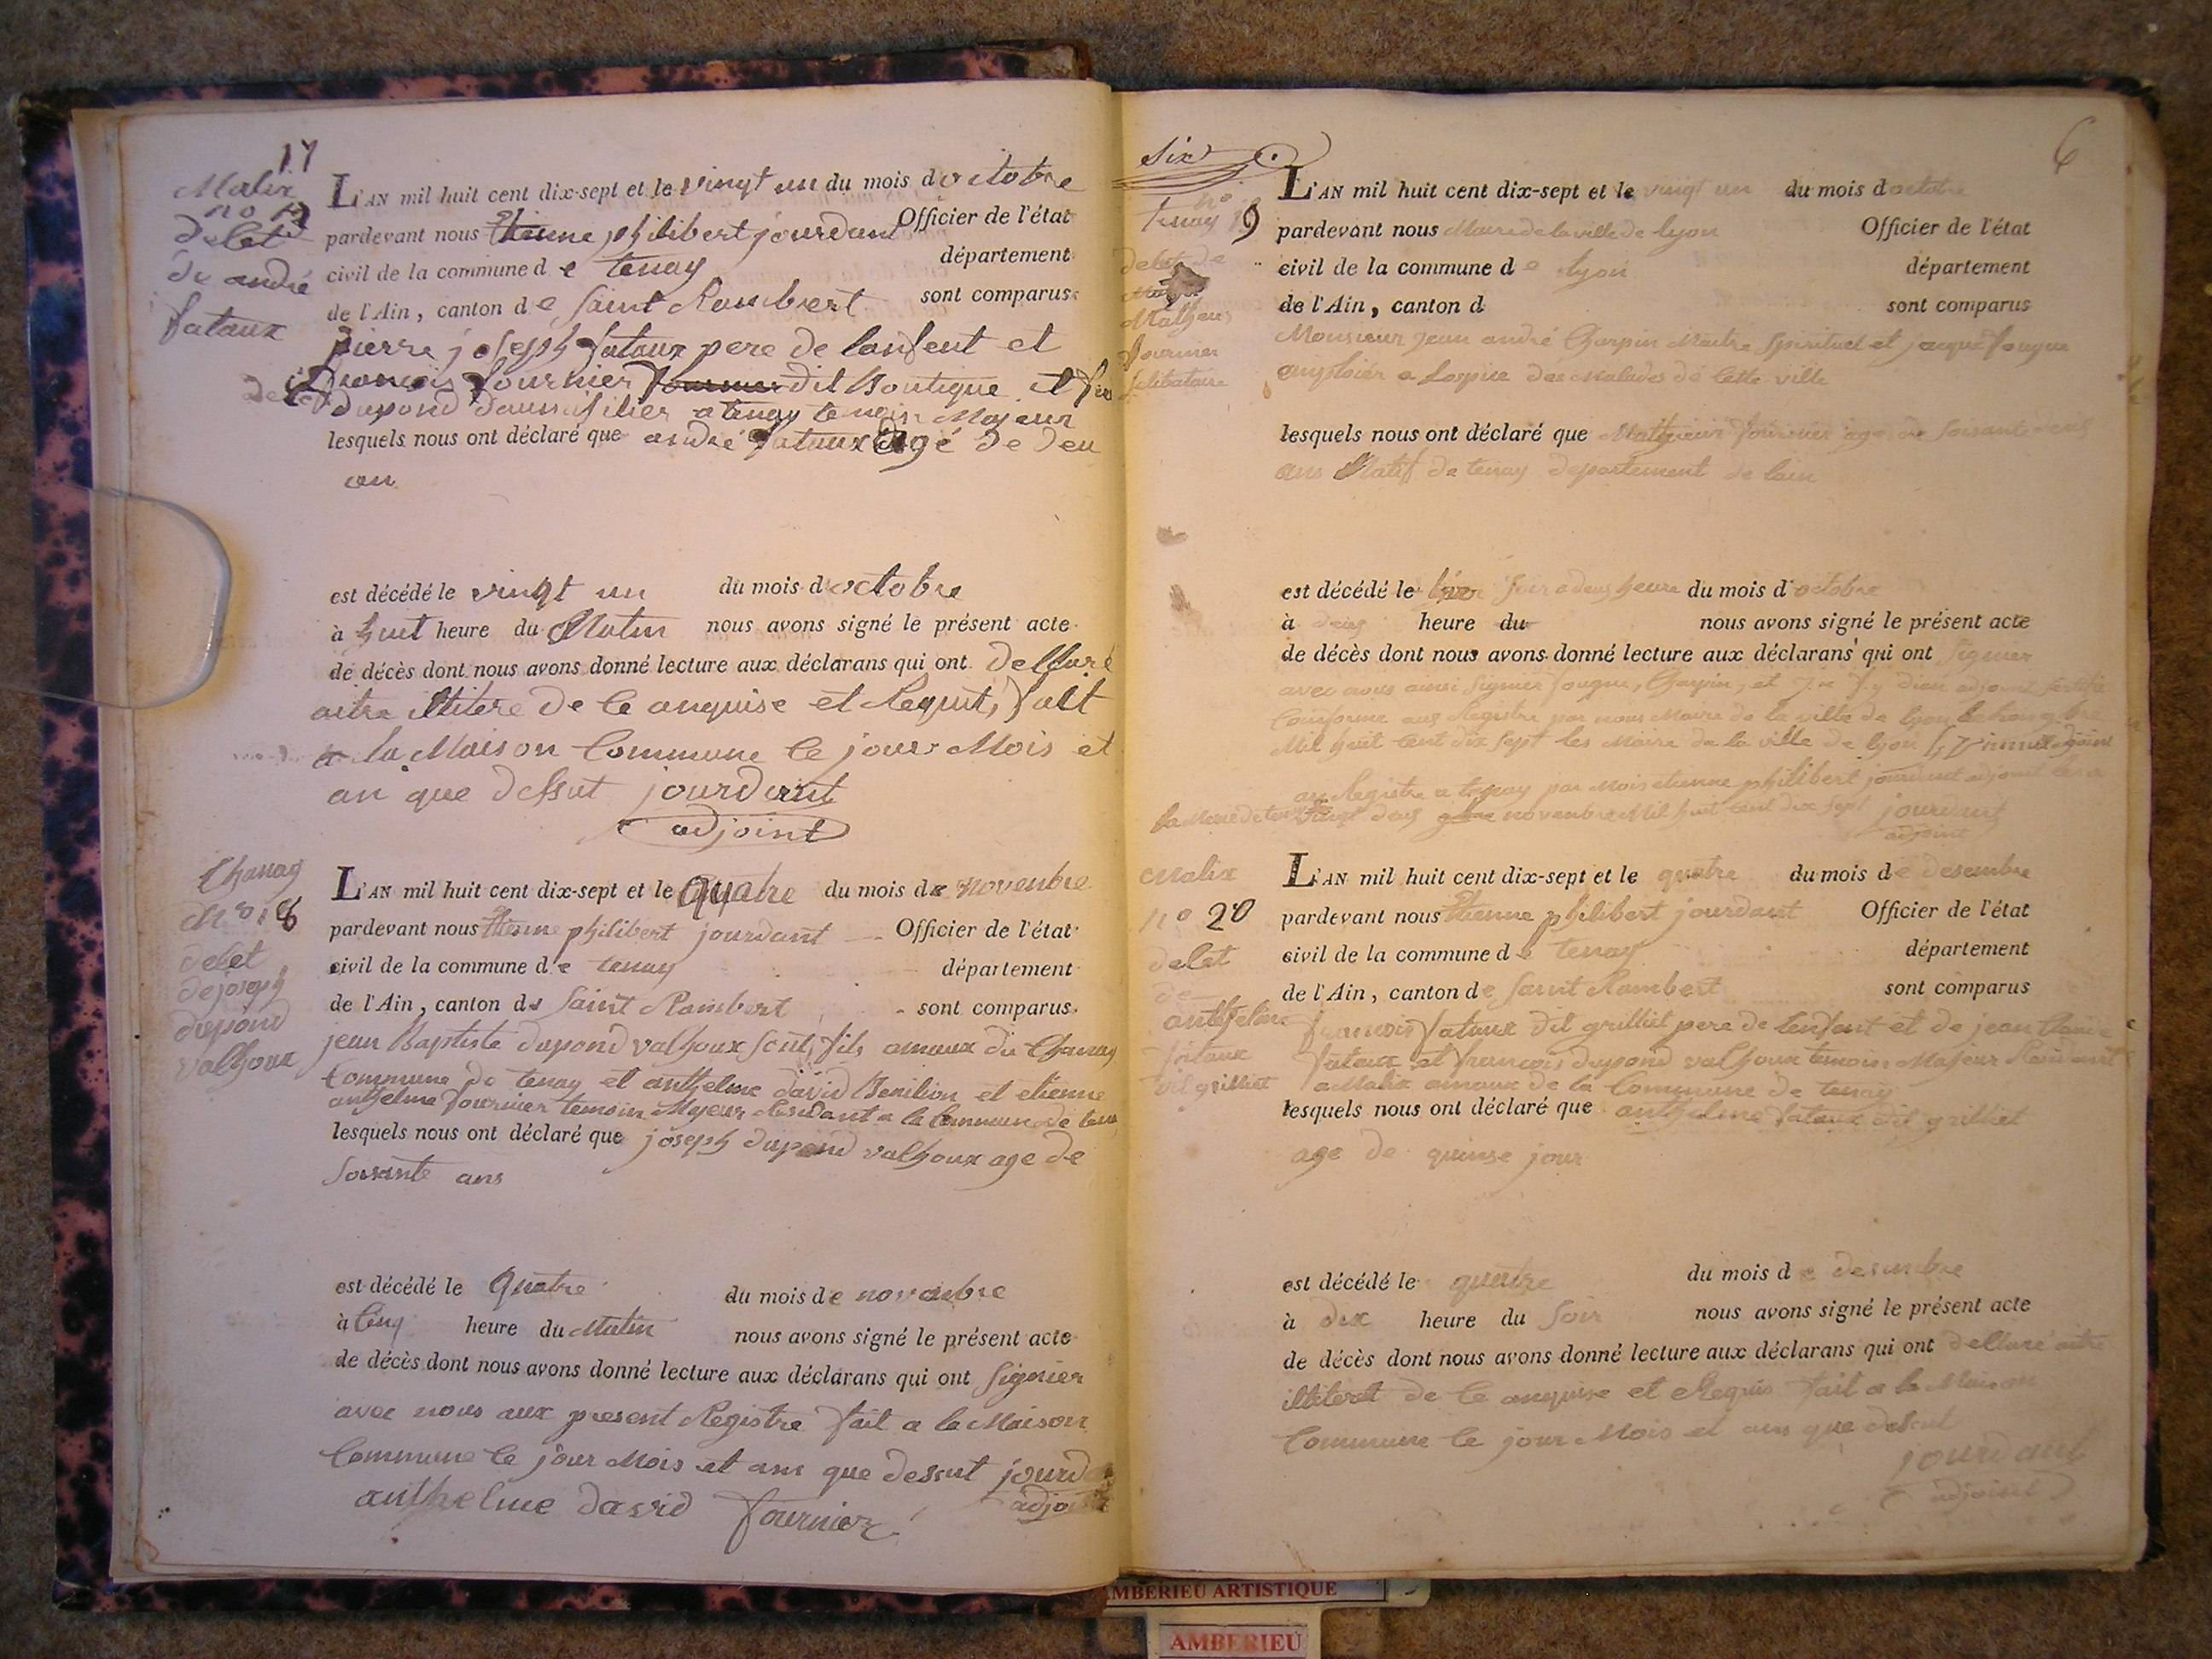 17
Malix
no 17
delet
de andré
fataux
L'AN mil huit cent dix-sept et le vingt un du mois d octobre
pardevant nous Etienne philibert jourdant Officier de l'état
civil de la commune d e tenay département
de l'Ain, canton d e Saint Rambert sont comparus
pierre joseph fataux pere de lenfent et
françois fournier fournier dit Boutique et
dupond tenay temoin Majeur
lesquels nous ont déclaré que andré fataux agé de deu
an
est décédé le vingt un du mois d octobre
à huit heure du Matin nous avons signé le présent acte
de décès dont nous avons donné lecture aux déclarans qui ont dellaré
aitre ilitere de ce anquise et Requit, fait
a la Maison Commune le jour Mois et
an que dessut jourdant
adjoint
Chanay
No 18
delet
de joseph
dupond
valhoux
L'AN mil huit cent dix-sept et le quatre du mois de novenbre
pardevant nous Etienne philibert jourdant Officier de l'état
civil de la commune d e tenay département
de l'Ain, canton de Saint Rambert sont comparus
jean Baptiste dupond valhoux fils amaux du Chanay
Commune de tenay et anthelme david et etienne
anthelme fournier temoin Majeur Residant a la Commune de
lesquels nous ont déclaré que joseph dupond valhoux age de
Soisante ans
est décédé le Quatre du mois de novenbre
à Cinq heure du Matin nous avons signé le présent acte
de décès dont nous avons donné lecture aux déclarans qui ont signier
avec nous aux present Registre fait a la Maison
Commune le jour Mois et ans que dessut jourd
adjoint
anthelme david fournier
six
6
no 19
tenay
delet de
Matheus
fournier
selibataire
L'AN mil huit cent dix-sept et le vingt un du mois d octobre
pardevant nous Maire de la ville de lyon Officier de l'état
civil de la commune d e lyon département
de l'Ain, canton d sont comparus
Monsieur jean andré Charpin Maitre Spirituel et jaque fougue
employier a Lospice des Malades de cette ville
lesquels nous ont déclaré que Mathieu fournier age de soisante
ans Natif de tenay departement de lain
est décédé le hier soir a deus heure du mois d'octobre
à deus heure du nous avons signé le présent acte
de décès dont nous avons donné lecture aux déclarans qui ont signier
avec nous ainsi signier fougue, Charpin, et adjoint
Conforme aux Registre par nous Maire de la ville de lyon
Mil huit cent dix sept les Maire de la ville de lyon adjoint
au Registre a tenay par Mois etienne philibert jourdant adjoint
la Mairie de tenay vingt deus novenbre Mil huit cent dix sept jourdant
adjoint
Malix
no 20
delet
de
anthelme
fataux
dit grilliet
L'AN mil huit cent dix-sept et le quatre du mois d e desembre
pardevant nous Etienne philibert jourdant Officier de l'état
civil de la commune d e tenay département
de l'Ain, canton d e saint Rambert sont comparus
francois fataux dit grilliet pere de lenfent et de jean Claude
fataux et françois dupond valhoux temoin Majeur Residant
a Malix amaux de la Commune de tenay
lesquels nous ont déclaré que anthelme fataux dit grilliet
age de quinse jour
est décédé le quatre du mois d e desembre
à dix heure du soir nous avons signé le présent acte
de décès dont nous avons donné lecture aux déclarans qui ont dellaré aitre
illiteret de ce anquise et Requis fait a la Maison
Commune le jour Mois et ans que dessut
jourdant
adjoint
AMBERIEU ARTISTIQUE
AMBERIEU